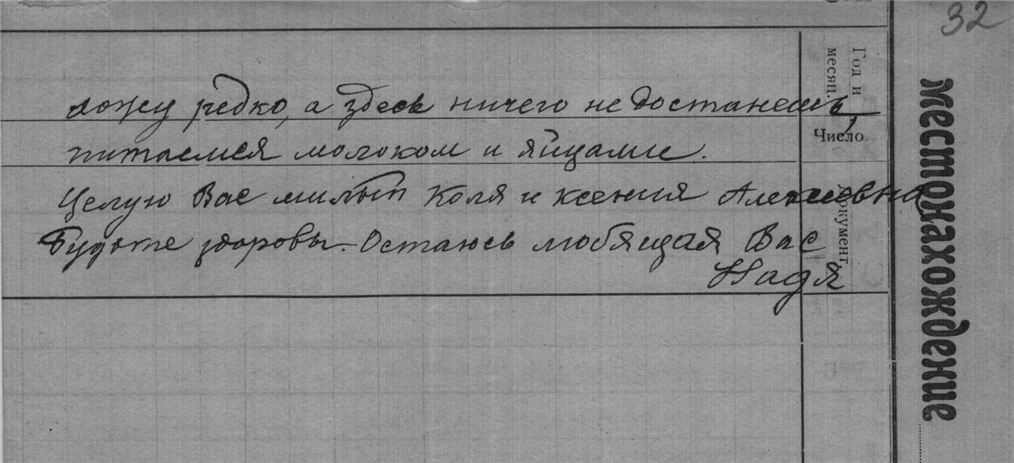 32
хожу редко, а здесь ничего не достанешь,
питаемся молоком и яйцами.
Целую Вас милый Коля и Ксения Алексеевна
Будьте здоровы. Остаюсь любящая Вас
Надя
Год и
месяц.
Число
Документ
местонахождение